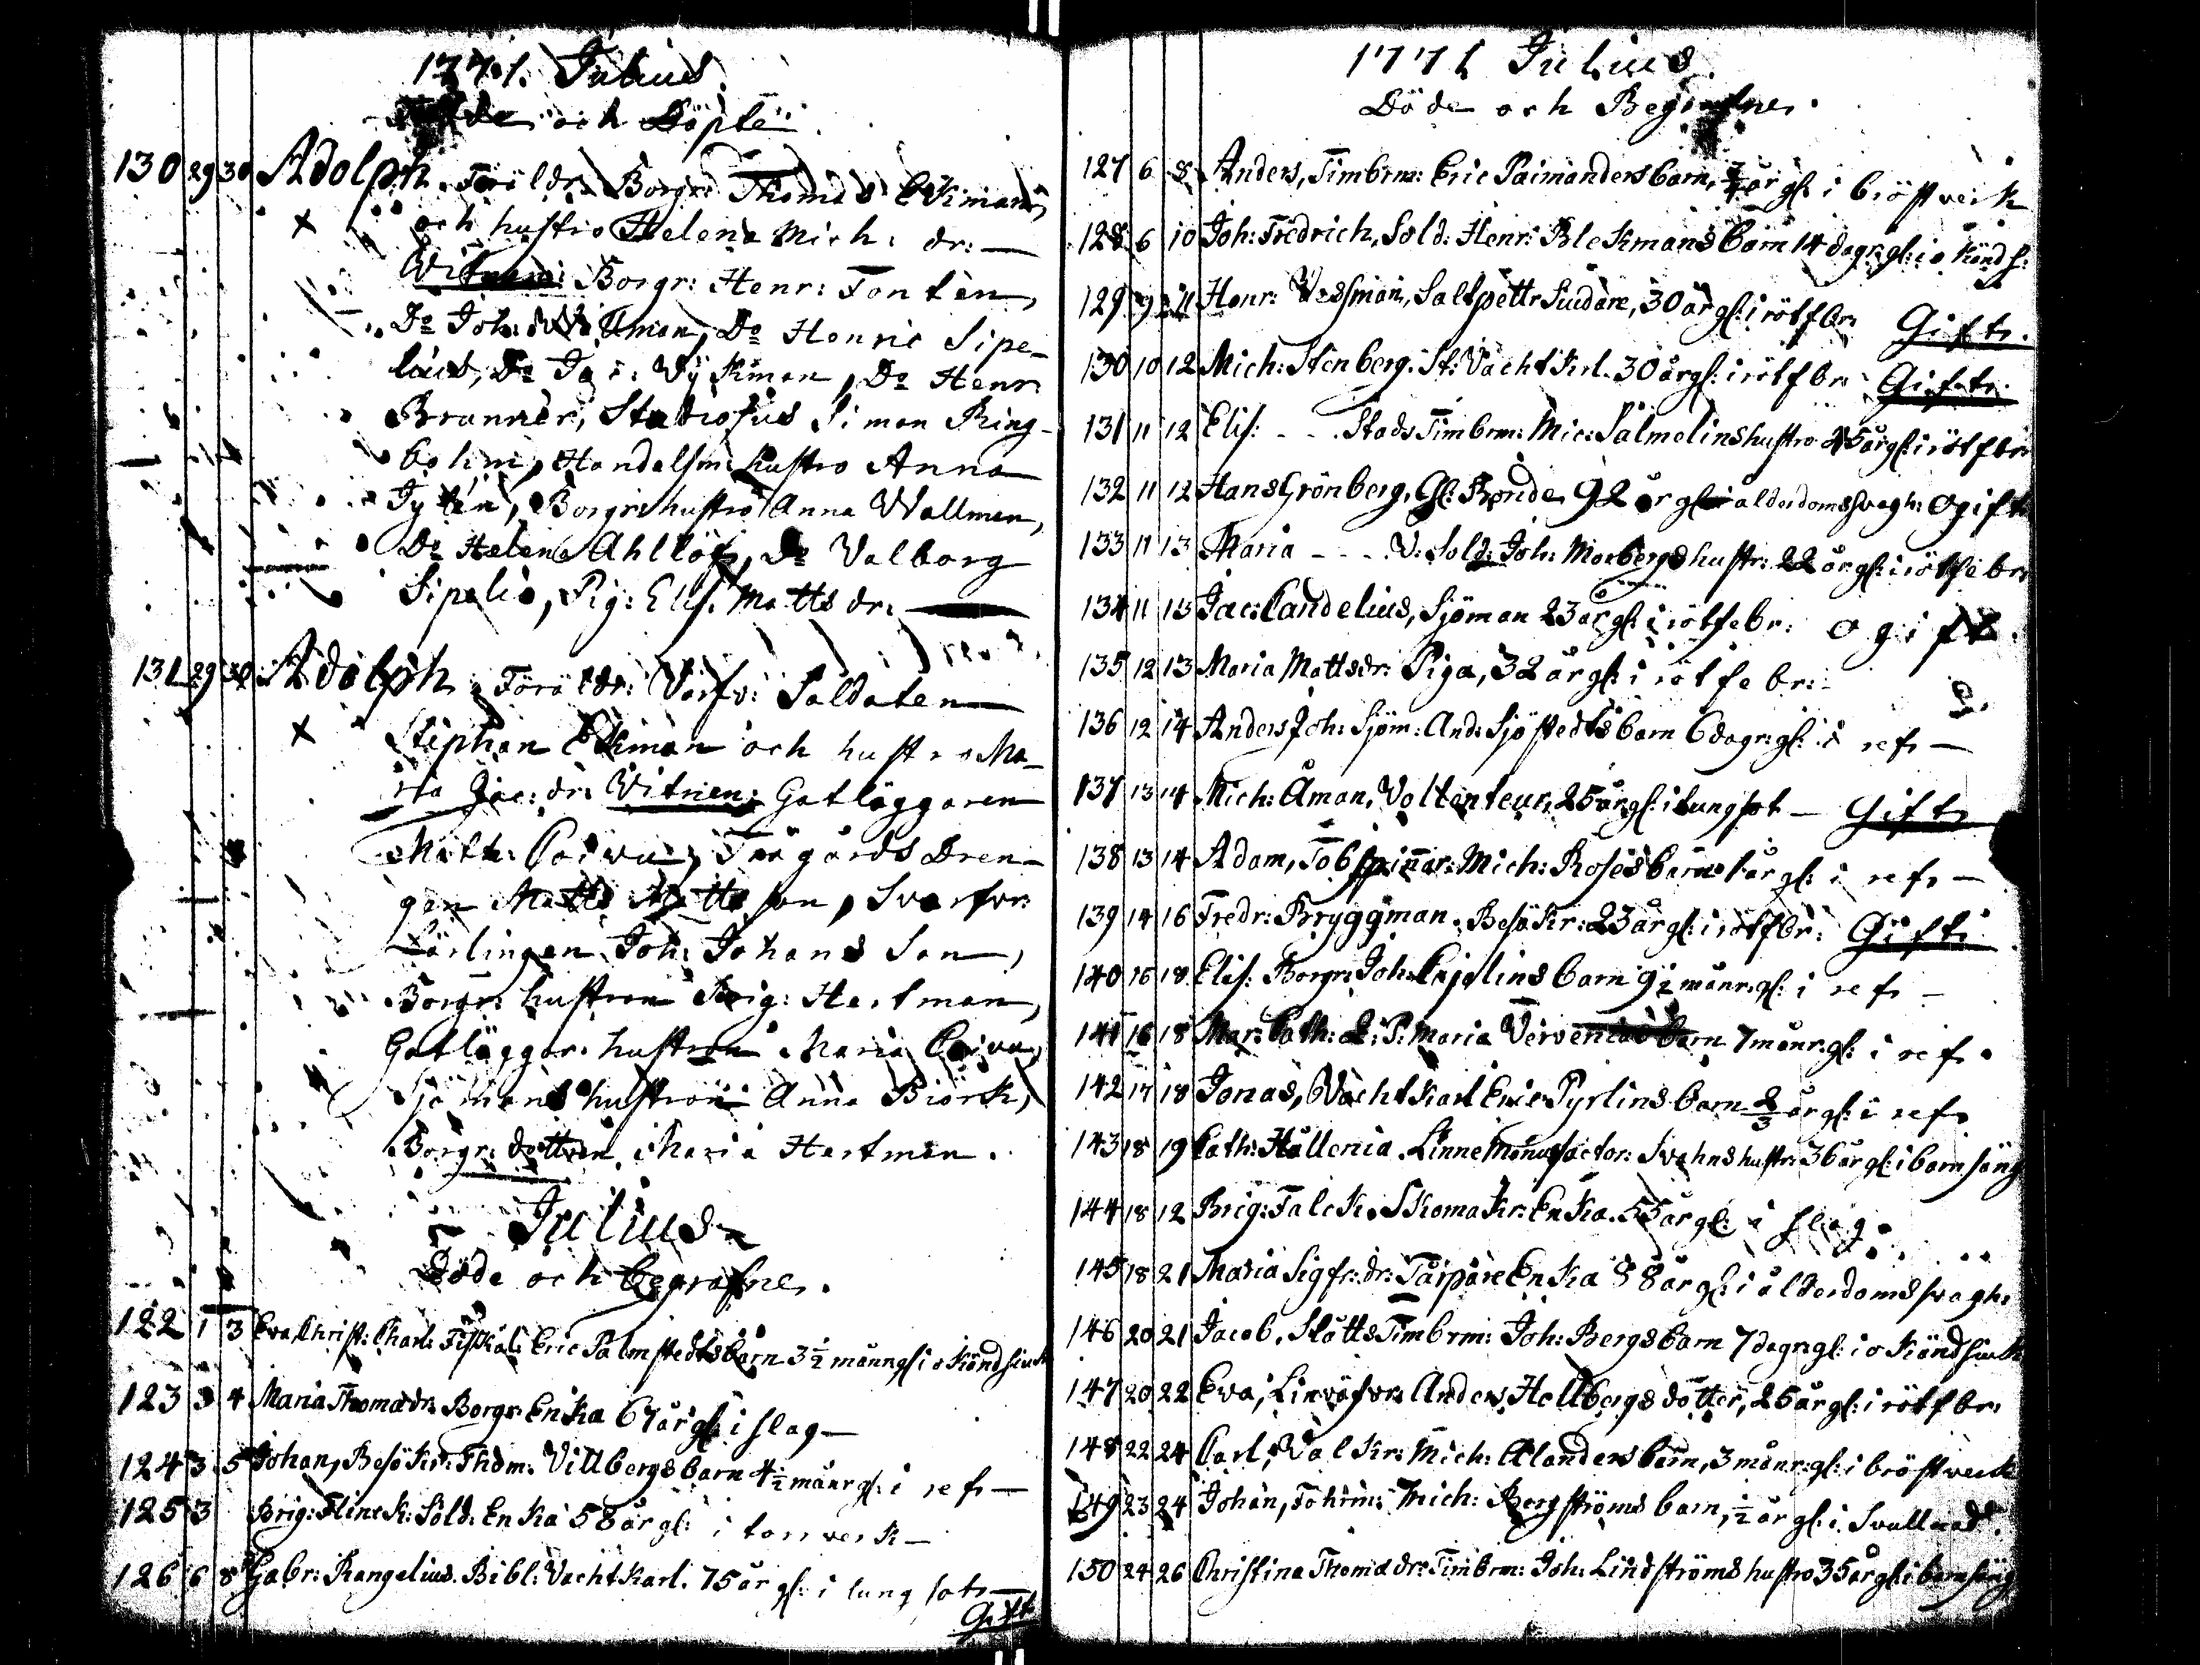 1771. Julius
Födde och Döpte
130 29 30 Adolph. Föräldr: Borgr: Thomas Ekman
och hustro Helena Mich: dr:
Witnen: Borgr: Henr: Tontèn,
Do Joh: Do Henric Sipe-
lius, Do Jac: Wijkman, Do Henr:
Brunnèr, Studiosus Simon Ring-
bohm, Handelsm: hustro Anna
Tytèn, Borgrs hustro Anna Wallman,
Do Helena Ahllöf, Do Valborg
Sipelia, Pig: Elis. Matts dr:
131 29 30 Adolph. Föräldr: Värfv: Soldaten
Stephan Ekman och hustro Ma-
ria Jac: dr: Witnen: Gatläggaren
Matth: Poivu, Trägårds Dren-
gen Matts Mattsson, Svarfvr:
Lärlingen Joh: Johans Son,
Borgr: hustron Brig: Hartman,
Gatläggar: hustron Maria Poivu,
Sjömans hustron Anna Biörk,
Borgr: dottren Maria Hartman.
Julius
Döde och begrafne.
122 1 3 Eva Christ: Charl: Fiskal: Eric Palmstedts barn 3½ månr gl: i okänd siuk
123 3 4 Maria Thomædr: Borgr: Enka 67 år gl: i slag
124 3 5 Johan, Besökr: Thom: Villbergs barn 4½ månr gl: i ref:
125 3 Brig: Flinck: Sold: Enka 58 år gl: i torrverk
126 6 8 Gabr: Rangelius. Bibl: Vachtkarl. 75 år gl: i lungsot:
Gift
1771 Julius.
Döde och Begrafne.
127 6 8 Anders, Timbrm: Eric Paimanders barn, ¾ år gl: i bröstverk
128 6 10 Joh: Fredrich, Sold: Henr: Blekmans barn 14 dagr: gl: i okänd s:
129 9 11 Henr: Vessman, Saltpettr Siudare, 30 år gl: i rötfbr: Gifts.
130 10 12 Mich: Stenberg. St: Vachtkrl. 30 år gl: i rötfbr: Gifts.
131 11 12 Elis: - - . Stads Timbrm: Mic: Salmelins hustro 45 år gl: i rötfbr:
132 11 12 Hans Grönberg, Gl: Bonde 92 år gl: i ålderdomssvagh: Ogift
133 11 13 Maria - - - V: Sold: Joh: Morbergs hustr: 22 år gl: i rötfebr:
134 11 13 Jac: Candelius, Sjöman 23 år gl: i rötfebr: ogift.
135 12 13 Maria Mattsdr: Piga, 32 år gl: i rötfebr: O.
136 12 14 Anders Joh: Sjöm: And: Sjöstedts barn 6 dagr: gl: i ref:
137 13 14 Mich: Åman, Voltenteur, 25 år gl: i lungsot Gifts
138 13 14 Adam, Tobspinnar: Mich: Roses barn 1 år gl: i ref:
139 14 16 Fredr: Bryggman. Besökr: 23 år gl: i rötfbr: Gifts
140 16 18 Elis: Borgr: Joh: barn 9½ månr: gl: i ref:
141 16 18 Mar: Cath: L: P: Maria barn 7 månr: gl: i ref:
142 17 18 Jonas, Wachtkarl Eric Pyrlins barn ⅔ år gl: i ref:
143 18 19 Cath: Hållenia. Linnemanufactor: Svahns hustr: 36 år gl: i barnsäng
144 18 12 Brig: Falck. Skomakr: Enka. 55 år gl: i slag.
145 18 21 Maria Sigfr: dr: Tårpare Enka 88 år gl: i ålderdomssvagh:
146 20 21 Jacob, Slåtts Timbrm: Joh: Bergs barn 7 dagr: gl: i okändsiuk
147 20 22 Eva, Linväfvr: Anders Hellbergs dotter, 25 år gl: i rötfbr:
148 22 24 Carl, Valkr: Mich: Alanders barn, 3 månr: gl: i bröstverk
149 23 24 Johan, Mich: Bergströms barn, ½ år gl: i Svullnad.
150 24 26 Christina Thomædr: Timbrm: Joh: Lindströms hustro 35 år gl: i barnsäng